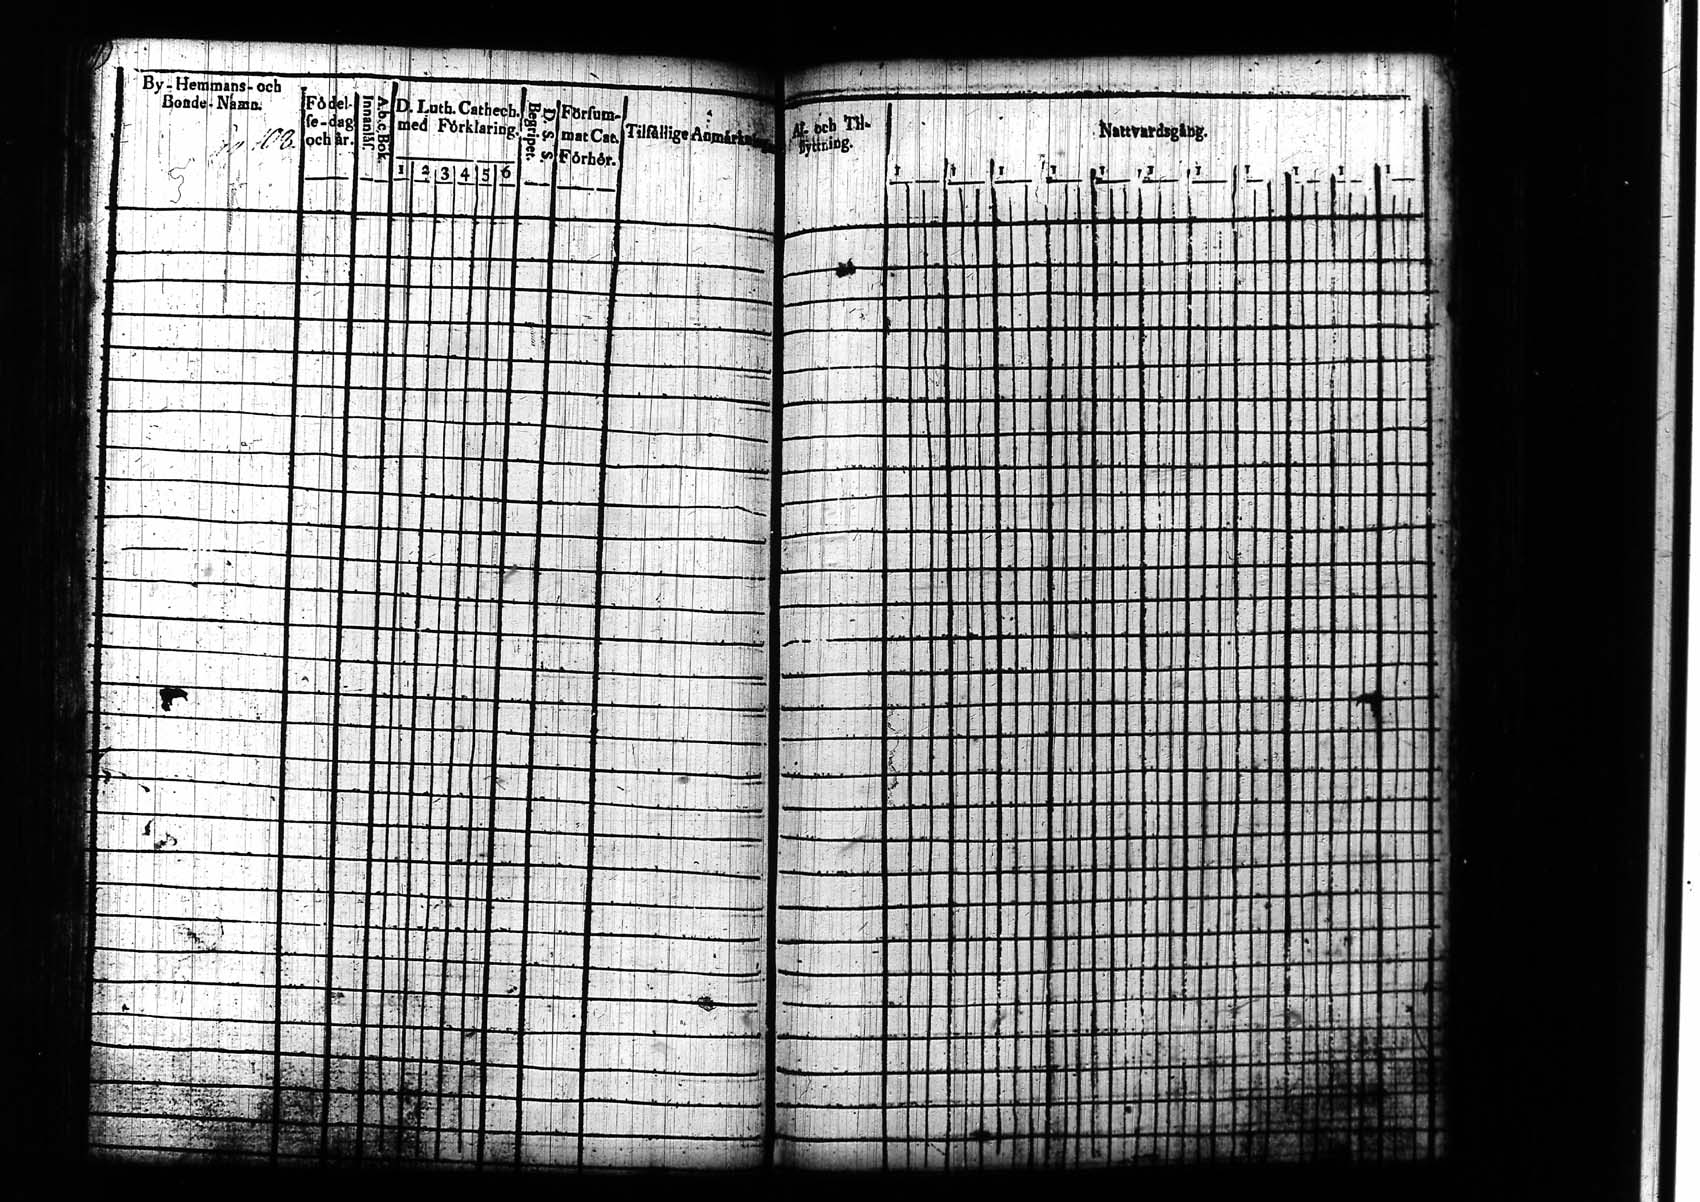 By-Hemmans- och
Bonde-Namn.
Födel-
se-dag
och år.
Innanläs.
A.b.c. Bok.
D. Luth. Cathech.
med Förklaring.
1 2 3 4 5 6
Begriper.
D. S. S.
Försum-
mat Cat.
Förhör.
Tilfällige Anmärkningar
Af- och Til-
flyttning.
Nattvardsgång.
1 1 1 1 1 1 1 1 1 1 1